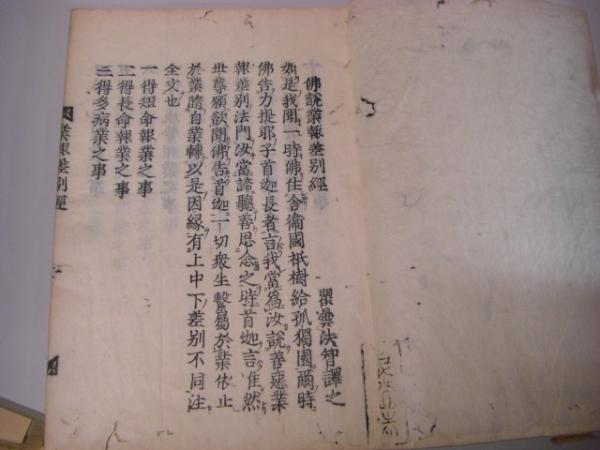 佛説業報差別經
瞿曇法智譯之
如是我聞一時佛住舍衞國祇樹給孤獨園爾時
佛告力提耶子首迦長者言我當爲汝説善惡業
報差别法門汝當諦聽善思念之時首迦言唯然
世尊願欲聞佛告首迦一切衆生繫屬於業依止
於業隨自業轉以是因縁有上中下差别不同注
全文也
一得短命報業之事
二得長命報業之事
三得多病業之事
業報差别經